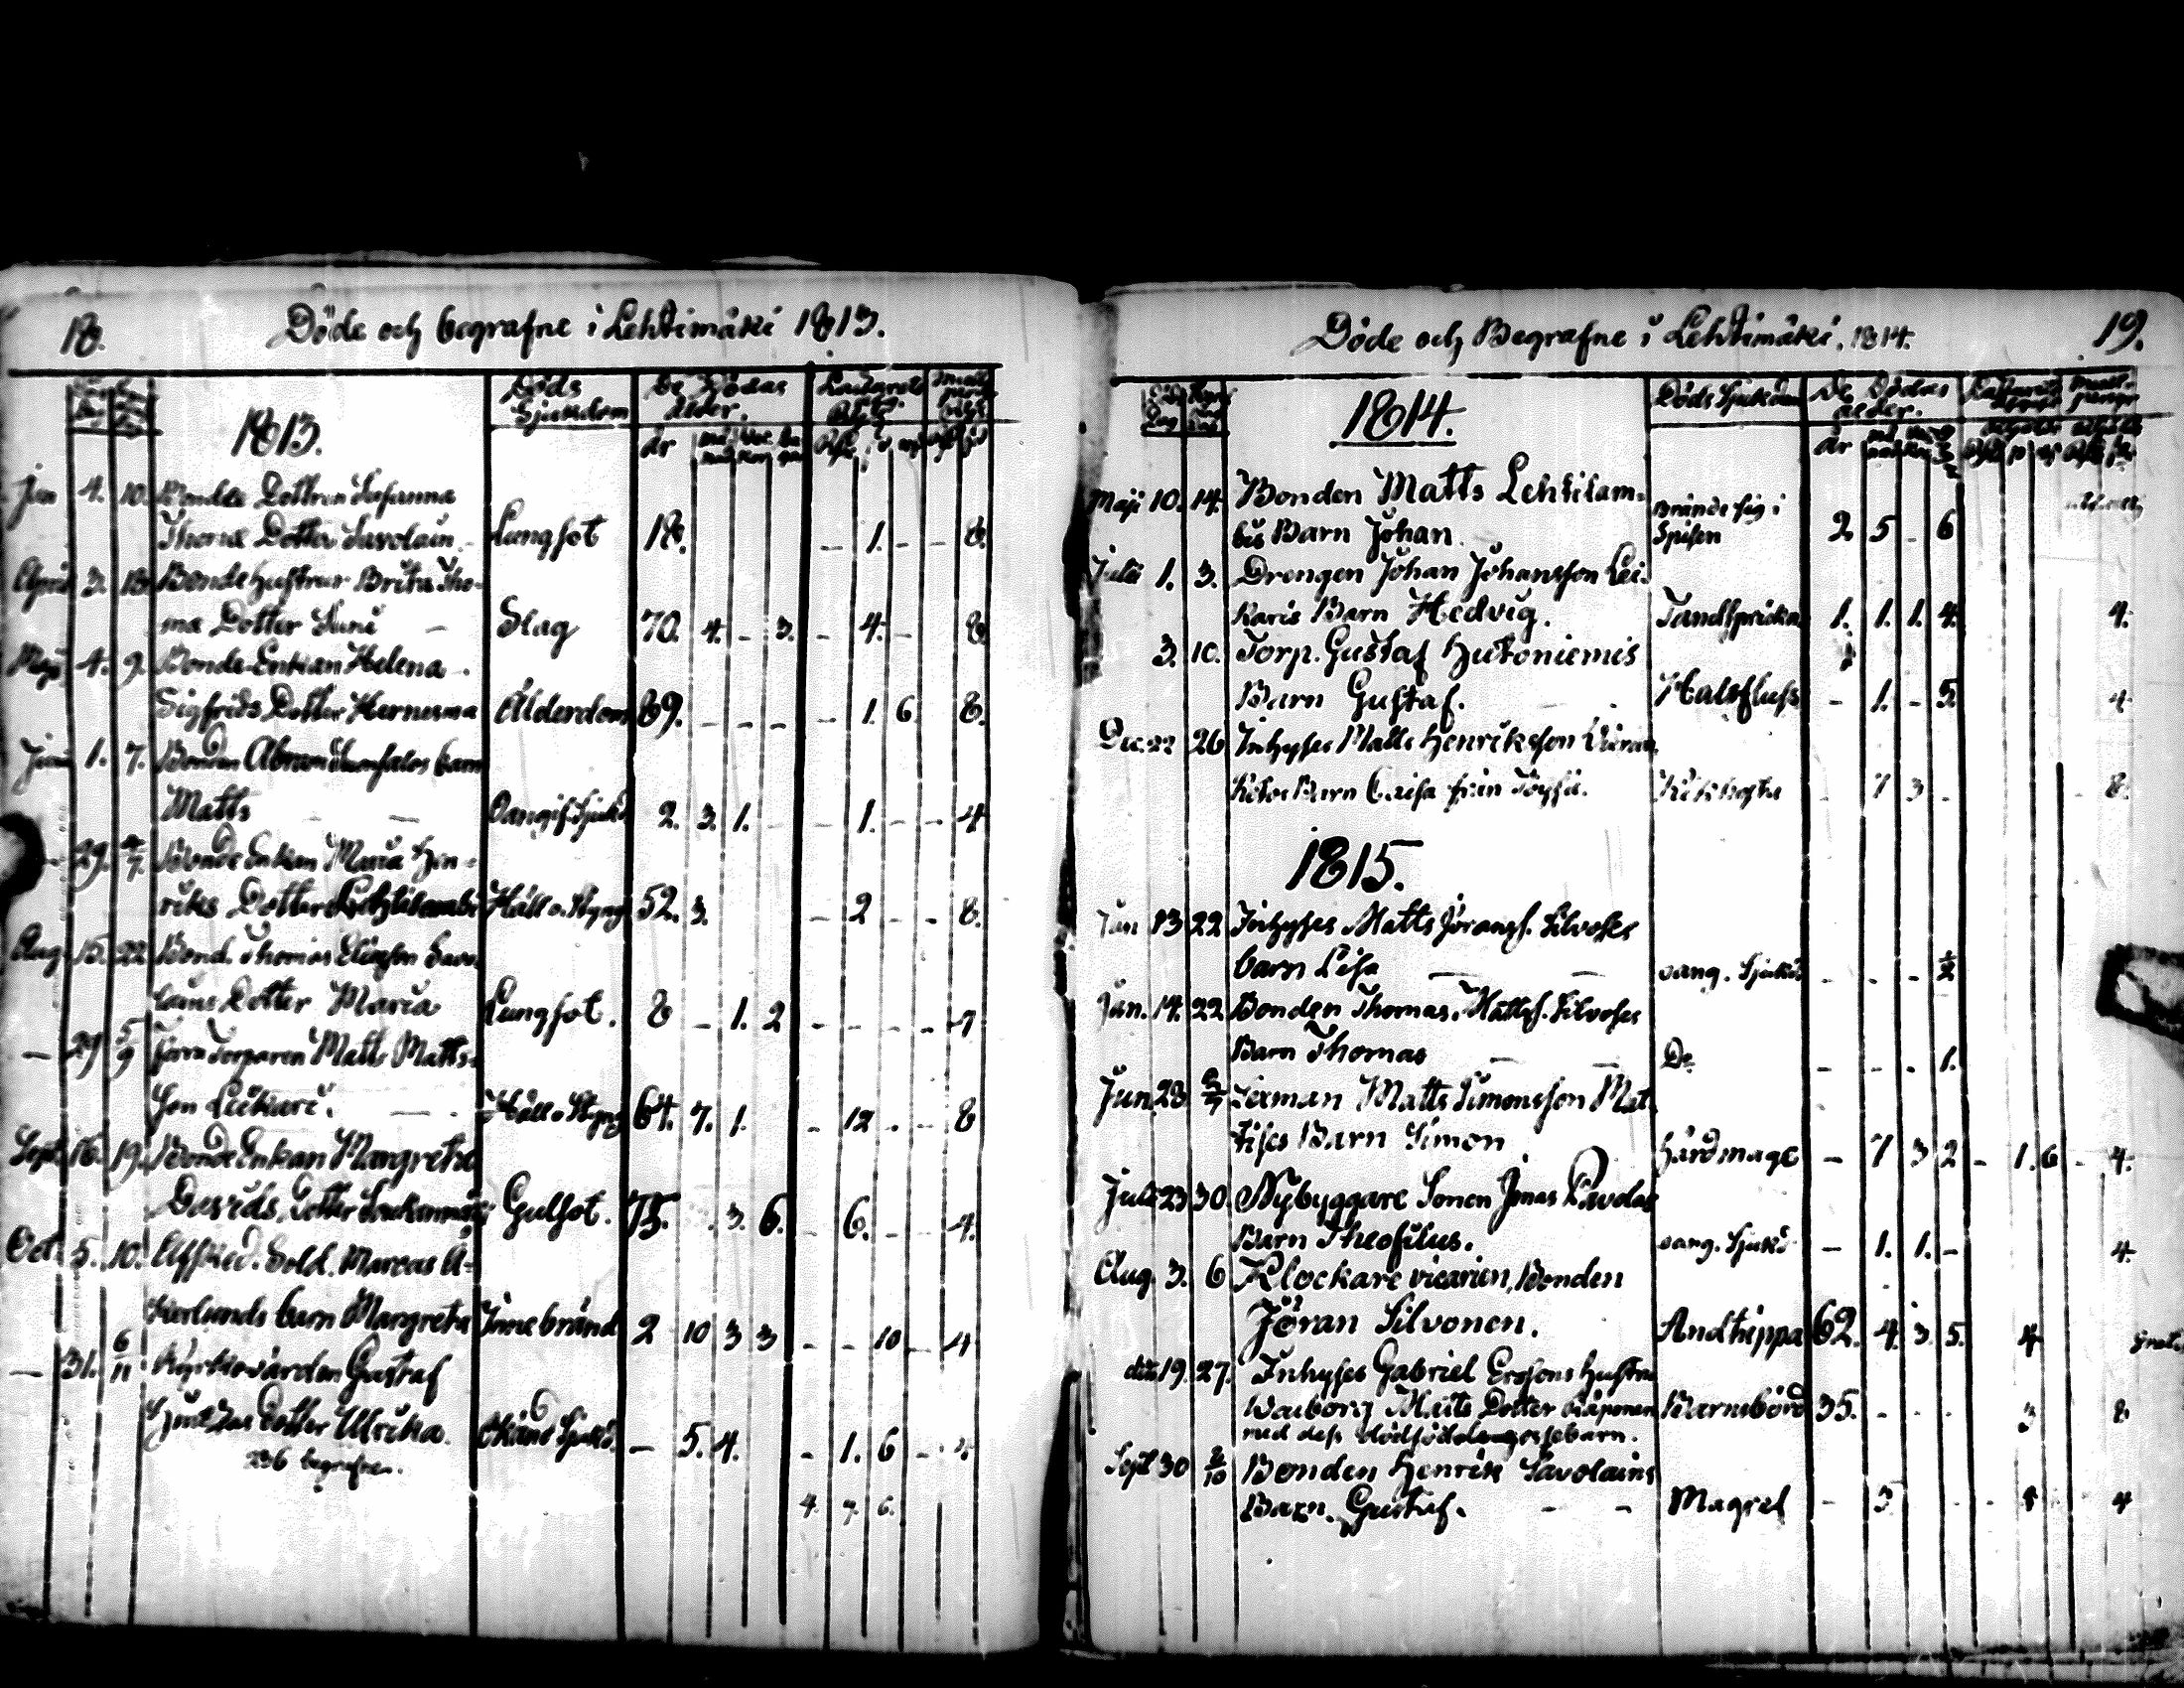 18. Döde och begrafne i Lehtimäki 1813.
Döds Sjukdom De Dödas ålder.
1813.
år
Jan 4. 10. Bonde Dottren Susanna
Thomæ Dotter Savolain Lungsot 18. - 1. - - 8.
April 3. 13 Bondehustrun Brita Tho-
mæ Dotter Suni - Slag 70. 4. - 3. - 4. - 8
Maji 4. 9. Bonde Enkan Helena
Sigfrids Dotter Hernesma Ålderdom 89. - - - - 1. 6 8.
Juni 1. 7. Bonden Abram barn
Matts - - Oangif. Sjukd 2. 3. 1. - - 1. - - 4
- 29. 4/7. Bonde Enkan Maria Hin-
riks Dotter Lehtilambi Håll o. Styng 52. 3. - 2 - - 8.
Aug. 15. 22 Bond. Thomas Eliæson Savo-
lains Dotter Maria Lungsot. 8 - 1. 2 - - - - 7
- 29 5/9 Förra Torparen Matts Matts-
son Leikari. - Håll o Styng 64. 7. 1. - 12 . - 8
Sept. 16. 19. Bonde Enkan Margretha
Davids Dotter Gulsot. 75. . 3. 6. - 6. - - 4.
Oct. 5. 10. Afsked. Sold. Marcus Å-
kerlunds barn Margreta Inne bränd 2 10 3 3 - - 10 - 4
- 31. 6/11 Kyrkovärden Gustaf
Dotter Ulrika. Okänd Sjukd. - 5. 4. - 1. 6 - 4
236 begrafne.
4. 7. 6.
Döde och Begrafne i Lehtimäki. 1814. 19.
Döds Sjukdom De Dödas ålder.
1814.
år
Maji 10. 14. Bonden Matts Lehtilam-
bis Barn Johan. Brände sig i Spisen 2 5 - 6
Julii 1. 3. Drengen Johan Johansson Lei-
karis Barn Hedvig. Tandspricka 1. 1. 1. 4. 4.
3. 10. Torp. Gustaf Hutoniemis
Barn Gustaf. Halsfluss - 1. - 5. 4
Dec. 22 26 Inhyses Matts Henriksson
Barn Caisa från Töysä. Kikhosta - 7 3 - - 8.
1815.
Jan 13 22 Inhyses Matts Jöransf. Silvoses
barn Lisa - - oang. Sjukd - - - 1/2
Jan. 14. 22 Bonden Thomas Mattsf. Silvoses
Barn Thomas - - Do - - . 1.
Jun. 23 2/7 Sexman Matts Simonsson Mat-
tises Barn Simon Hårdmage - 7 3 2 - 1. 6 - 4.
Juli 23 30. Nybyggare Sonen Jonas Pavolas
Barn Theofilus. oang. Sjukd - 1. 1. - 4
Aug. 3. 6 Klockare vicarien, Bonden
Jöran Silvonen. Andtäppa 62. 4. 3. 5. 4
dito 19. 27. Inhyses Gabriel Erssons Hustru
Walborg Matts Dotter Barnsbörd 35. - - - 3 8
med dess dödfödde gossebarn.
Sept 30 2/10 Bonden Henrik Savolains
Barn. Gustaf. - - Magref - 3 - - 4 4